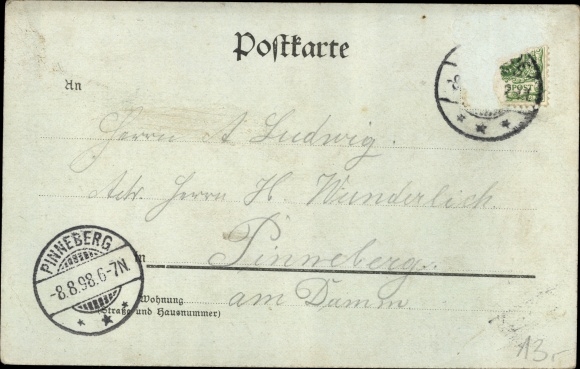 Postkarte
An
Herrn A Ludwig.
Adr. Herrn H. Wunderlich.
in Pinneberg.
am Damm
Wohnung
(Straße und Hausnummer)
PINNEBERG
-8.8.98.6-7N.
-8.
POST
A3,-